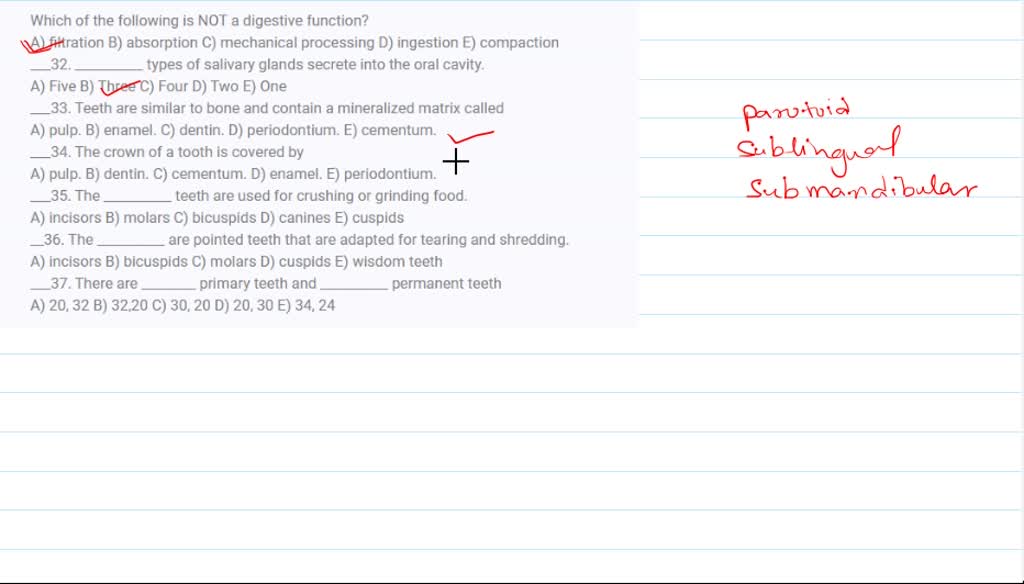 Which of the following is NOT a digestive function?
A) filtration B) absorption C) mechanical processing D) ingestion E) compaction
__32. ________ types of salivary glands secrete into the oral cavity.
A) Five B) Three C) Four D) Two E) One
__33. Teeth are similar to bone and contain a mineralized matrix called
A) pulp. B) enamel. C) dentin. D) periodontium. E) cementum.
__34. The crown of a tooth is covered by
A) pulp. B) dentin. C) cementum. D) enamel. E) periodontium.
__35. The ________ teeth are used for crushing or grinding food.
A) incisors B) molars C) bicuspids D) canines E) cuspids
_36. The ________ are pointed teeth that are adapted for tearing and shredding.
A) incisors B) bicuspids C) molars D) cuspids E) wisdom teeth
__37. There are ______ primary teeth and ________ permanent teeth
A) 20, 32 B) 32,20 C) 30, 20 D) 20, 30 E) 34, 24
parotoid
sublingual
submandibular